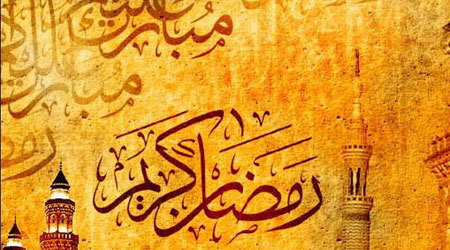 مبارك عليكم
مبارك
رمضان كريم